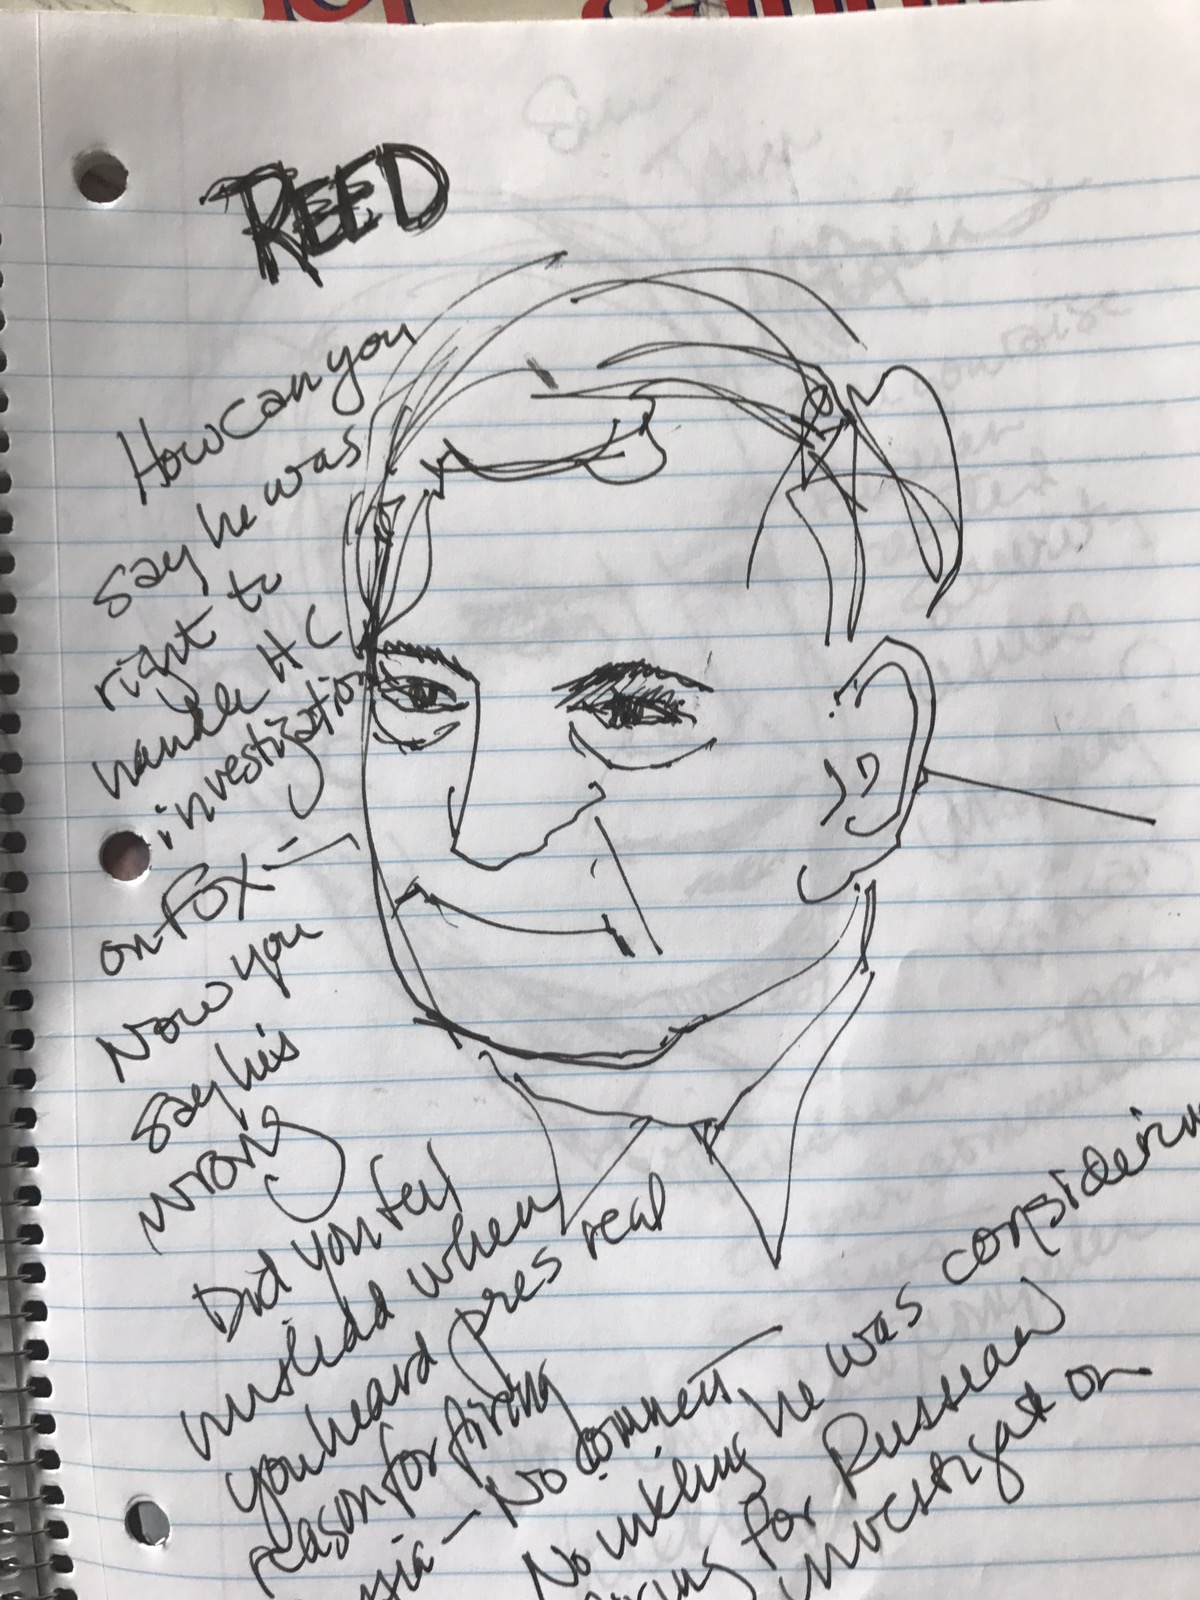 REED
How can you
say he was
right to
handle HC
investigation
on FOX —
Now you
say he's
wrong
Did you feel
misledd when
you heard pres real
reason for firing
No comment
No inkling he was considering
for Russian
investigation